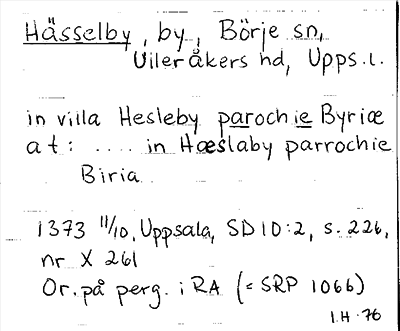 Hässelby, by, Börje sn,
Ulleråkers hd, Upps.l.
in villa Hesleby parochie Byriæ
at: .... in Hæslaby parrochie
Biria
1373 11/10, Uppsala, SD 10:2, s. 226,
nr X 261
Or. på perg. i RA (= SRP 1066)
I.H. 76